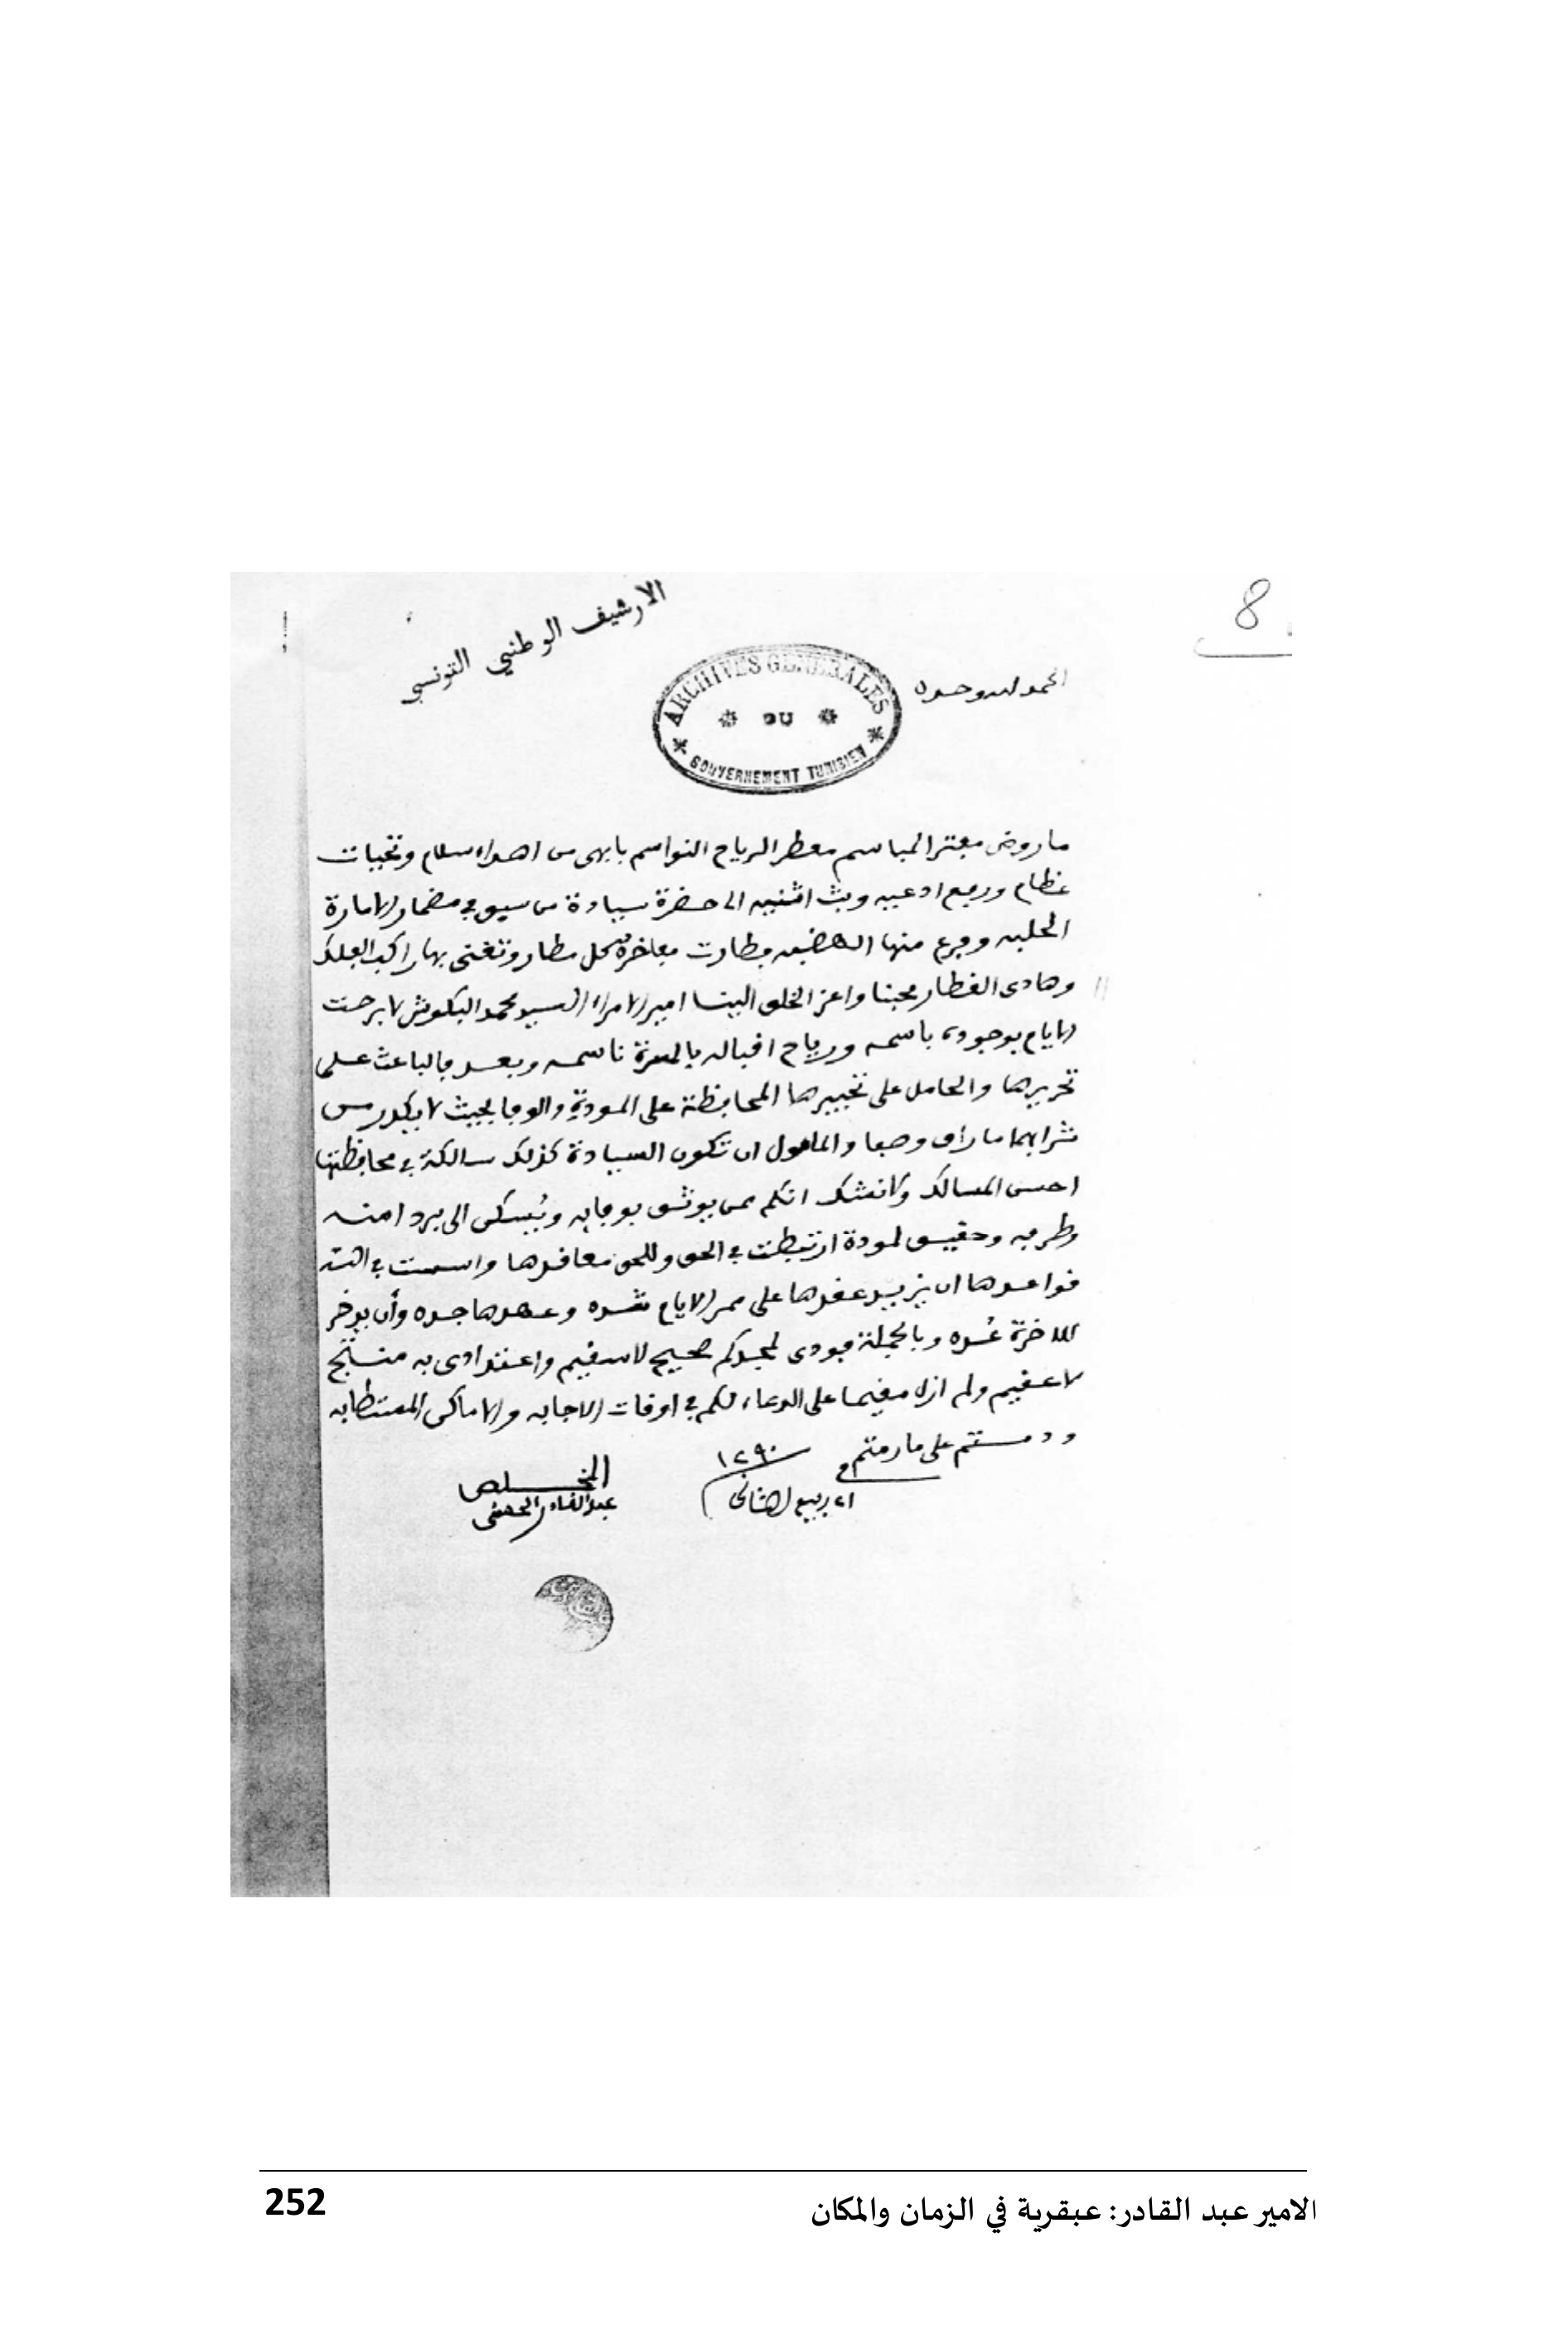 8
الارشيف الوطني التونسي
الحمد لله وحده
ARCHIVES GENERALES
DU
GOUVERNEMENT TUNISIEN
ما روض مفتر المباسم معطر الرياح النواسم بابهى من اهداء سلام وتحيات
عظام ورفع ادعيه وبث اثنيه الى حضرة سيادة من سبق في مضمار الامارة
الحلبه وفرع منها الهضبه وطارت مفاخره كل مطار وتغنى بها راكب الفلك
وهادى القطار محبنا واعز الخلق الينا امير الامراء السيد محمد البكوش لا برحت
الايام بوجوده باسمه ورياح اقباله بالمسرة ناسمه وبعد فالباعث على
تحريرها والحامل على تحبيرها المحافظة على المودة والوفا بحيث لا يكدر من
شرابهما ما راق وصفا والمامول ان تكون السيادة كذلك سالكة في محافظتها
احسن المسالك ولا نشك انكم ممن يوثق بوفايه ويُسكن الى برد
وحقيق لمودة ارتبطت في الحق وللحق معاقدها واسست في الله
قواعدها ان يزيد عقدها على ممر الايام شده وعهدها جده وأن يدخر
للاخرة عُده وبالجملة فودى لمجدكم صحيح لا سقيم واعتدادى به منتج
لا عقيم ولم ازل مقيما على الدعاء لكم في اوقات الاجابه والاماكن المستطابه
ودمتم على ما رمتم في
٢١ ربيع الثانى ١٢٩٠
المخلص
عبد القادر الحسنى
الامير عبد القادر: عبقرية في الزمان والمكان
252